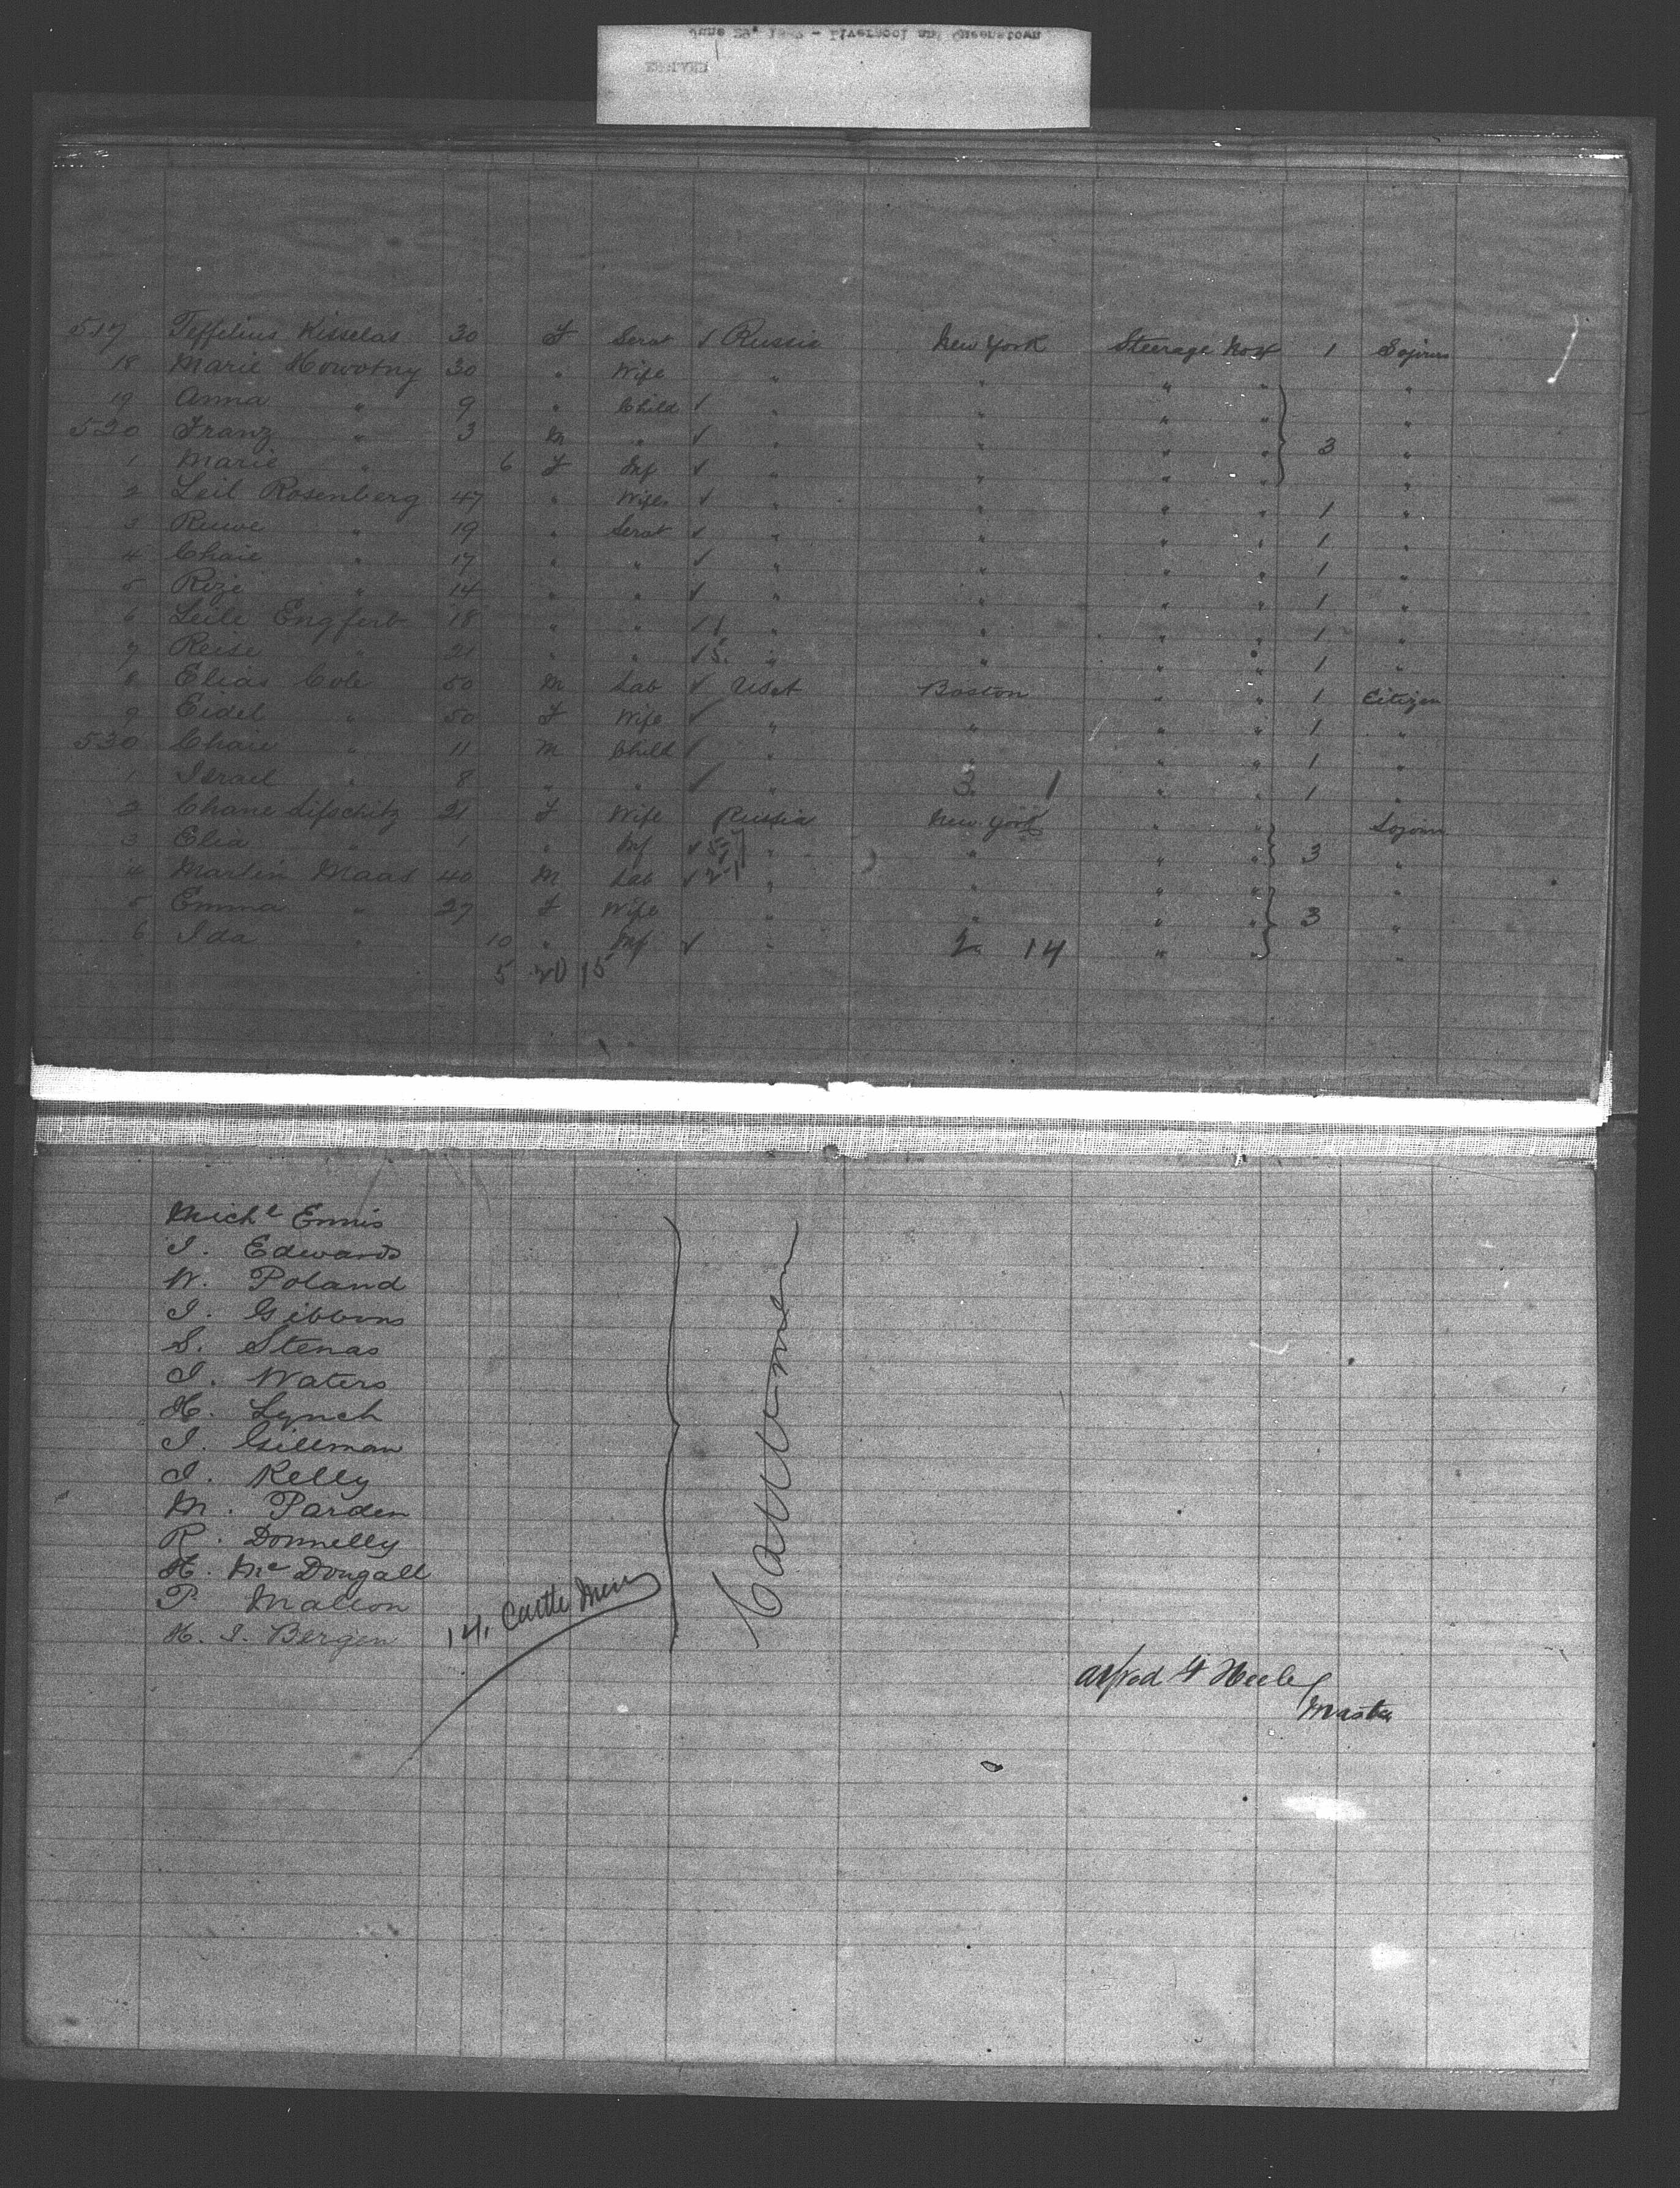 June 29, 1887 - Liverpool and Queenstown
517 Teffelius Kisselas 30 F Servt ✓ Russia New York Steerage No 4 1 Sojourn
18 Marie Nowotny 30 " Wife " " " " "
19 Anna " 9 " Child ✓ " " " " "
520 Franz " 3 M " ✓ " " " " 3 "
1 Marie " 6 F Inf ✓ " " " " "
2 Leib Rosenberg 47 " Wife ✓ " " " " 1 "
3 Ruwe " 19 " Servt ✓ " " " " 1 "
4 Chaie " 17 " " ✓ " " " " 1 "
5 Reze " 14 " " ✓ " " " " 1 "
6 Leile Engferb 18 " " ✓ " " " " 1 "
7 Reise " 21 " " ✓ 5. " " " " 1 "
8 Elias Cole 50 M Lab ✓ USA Boston " " 1 Citizen
9 Eidel " 50 F Wife ✓ " " " " 1 "
530 Chaie " 11 M Child ✓ " " " " 1 "
1 Israel " 8 " " ✓ " 3 1 " " 1 "
2 Chane Lifschitz 21 F Wife Russia New York " " Sojourn
3 Elia " 1 " Inf ✓ " " " " 3 "
4 Martin Maas 40 M Lab ✓ " " " " "
5 Emma " 27 F Wife " " " " 3 "
6 Ida " 10 " Inf ✓ " 2 14 " " "
5 20 15
Michl Ennis
J. Edwards
W. Poland
J. Gibbons
S. Stenas
J. Waters
H. Lynch
J. Gillman
J. Kelly
M. Parden
R. Donnelly
H. McDougall
P. Mallon
H. J. Bergen
14. Cattle Men
Cattlemen
Alfred H Neele
Master